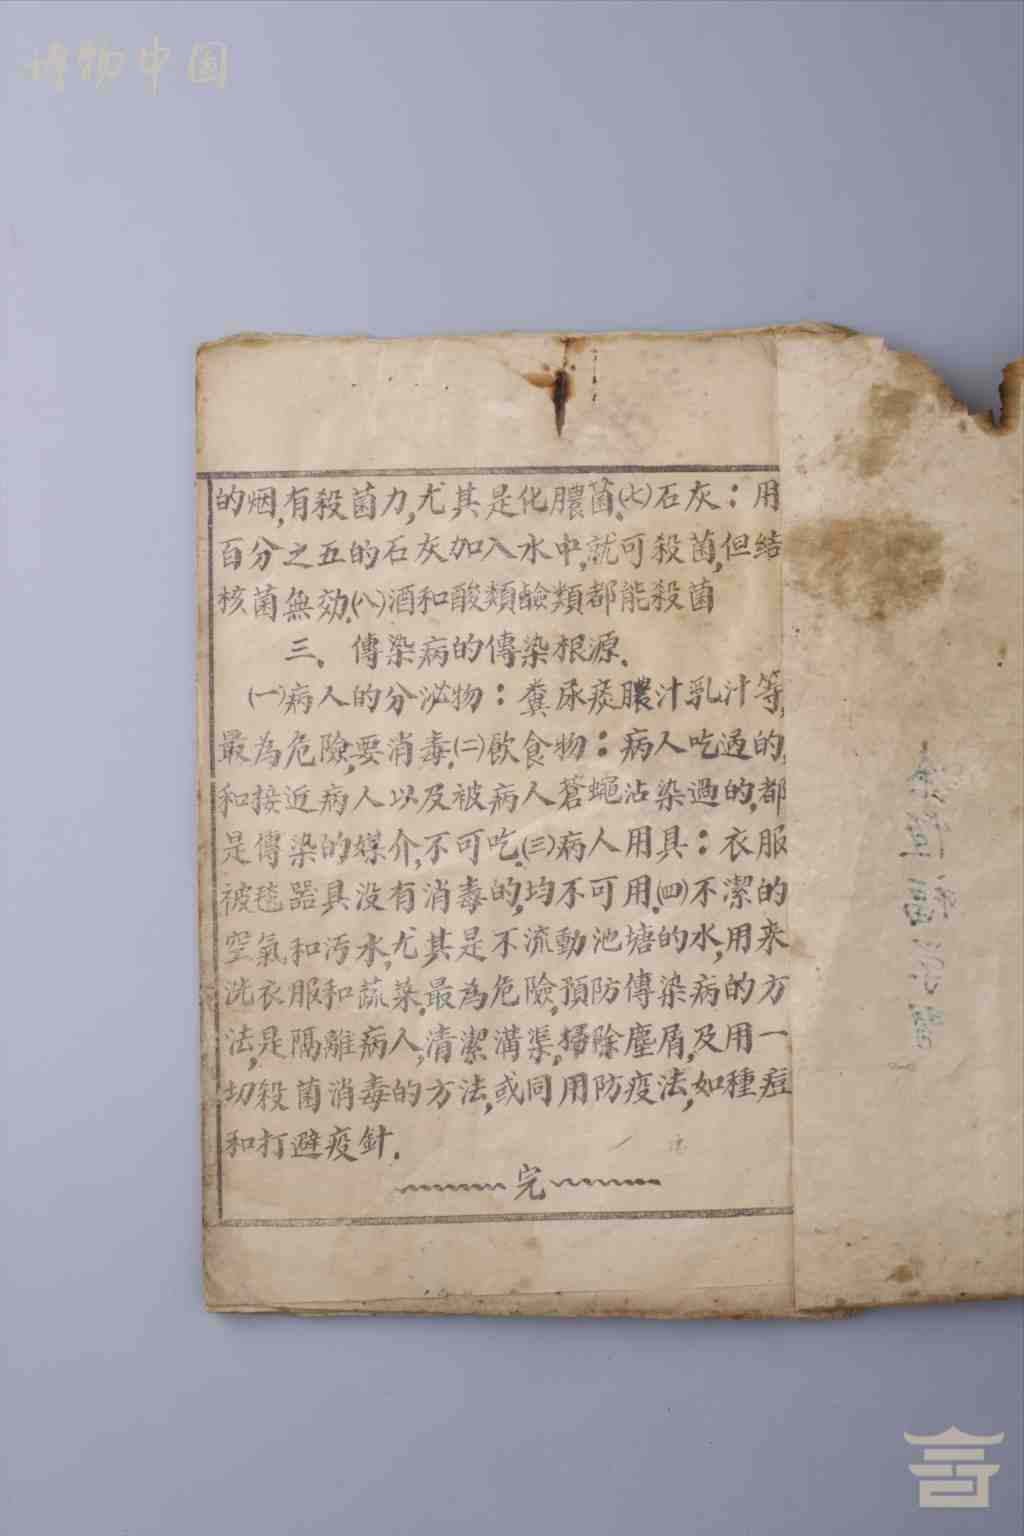 博物中国
的烟,有殺菌力,尤其是化膿菌.㈦石灰:用
百分之五的石灰加入水中,就可殺菌,但结
核菌無効.㈧酒和酸類鹼類都能殺菌
三、傳染病的傳染根源.
㈠病人的分泌物:糞尿痰膿汁乳汁等,
最為危險,要消毒.㈡飲食物:病人吃過的,
和接近病人以及被病人蒼蠅沾染過的,都
是傳染的媒介,不可吃.㈢病人用具:衣服
被毯器具没有消毒的,均不可用.㈣不潔的
空氣和污水,尤其是不流動池塘的水,用来
洗衣服和蔬菜,最為危險,預防傳染病的方
法,是隔離病人,清潔溝渠,掃除塵屑,及用一
切殺菌消毒的方法,或同用防疫法,如種痘
和打避疫針.
完